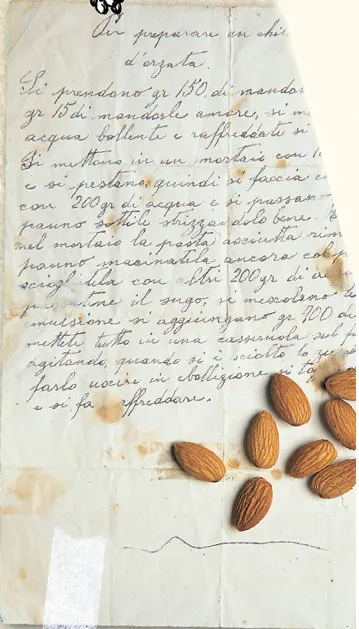 Per preparare un chil
d'orzata.
Si prendono gr 150 di mandor
gr 15 di mandorle amare, si m
acqua bollente e raffreddate si
Si mettono in un mortaio con
e si pestano, quindi si faccia
con 200 gr di acqua e si passano
panno sottile strizzandolo bene.
nel mortaio la pasta asciutta rim
panno macinatela ancora col p
scioglitela con altri 200 gr di
il sugo, si mescolano
emulsione si aggiungano gr 700 di
mettete tutto in una casseruola sul
agitando, quando si è sciolto lo zu
farlo uscire in ebollizione si
e si fa raffreddare.